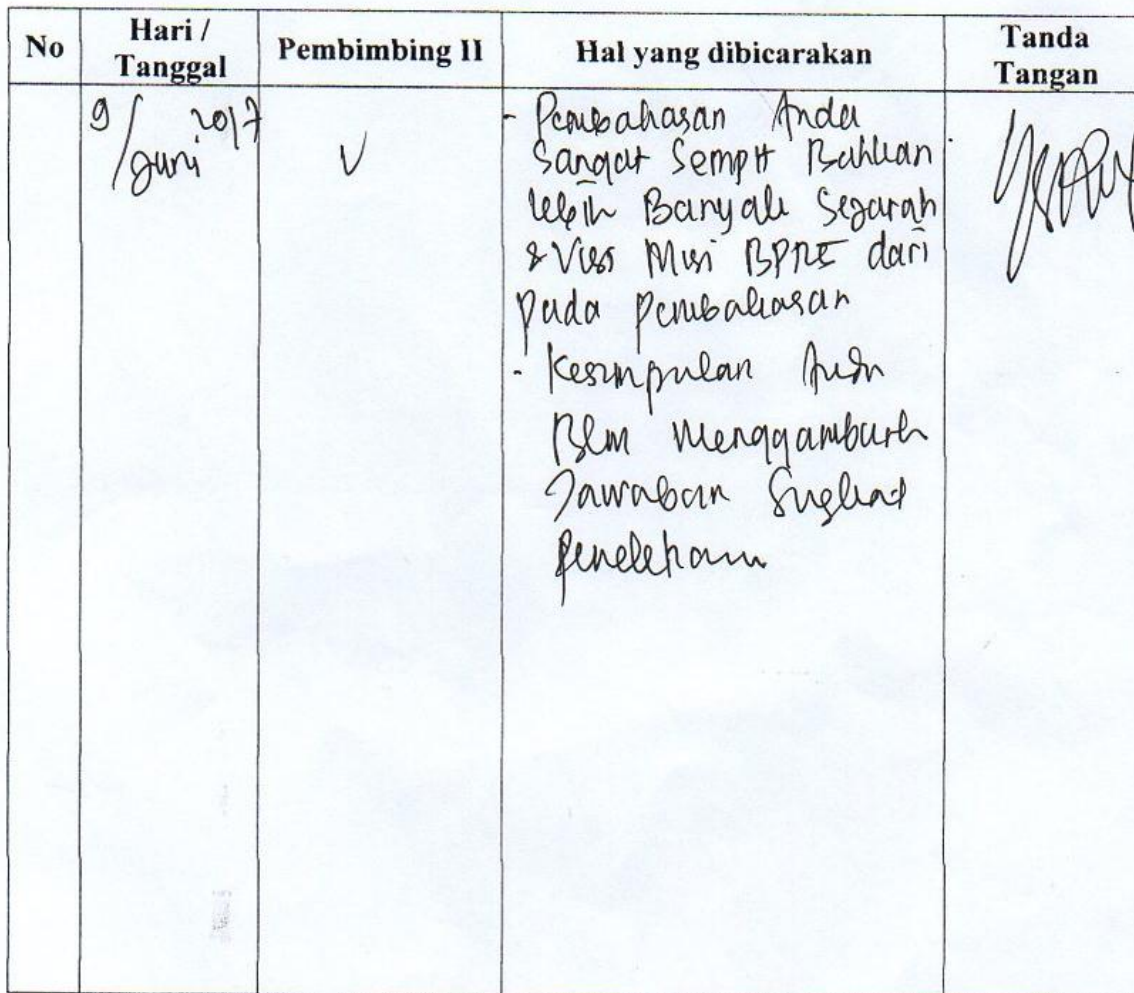 No
Hari /
Tanggal
Pembimbing II
Hal yang dibicarakan
Tanda
Tangan
9 / Juni 2017
V
- Pembahasan Anda
Sangat Sempit Bahkan
lebih Banyak Sejarah
& Visi Misi dari
pada pembahasan
- Kesimpulan Anda
Blm Menggambarkan
Jawaban Singkat
penelitian